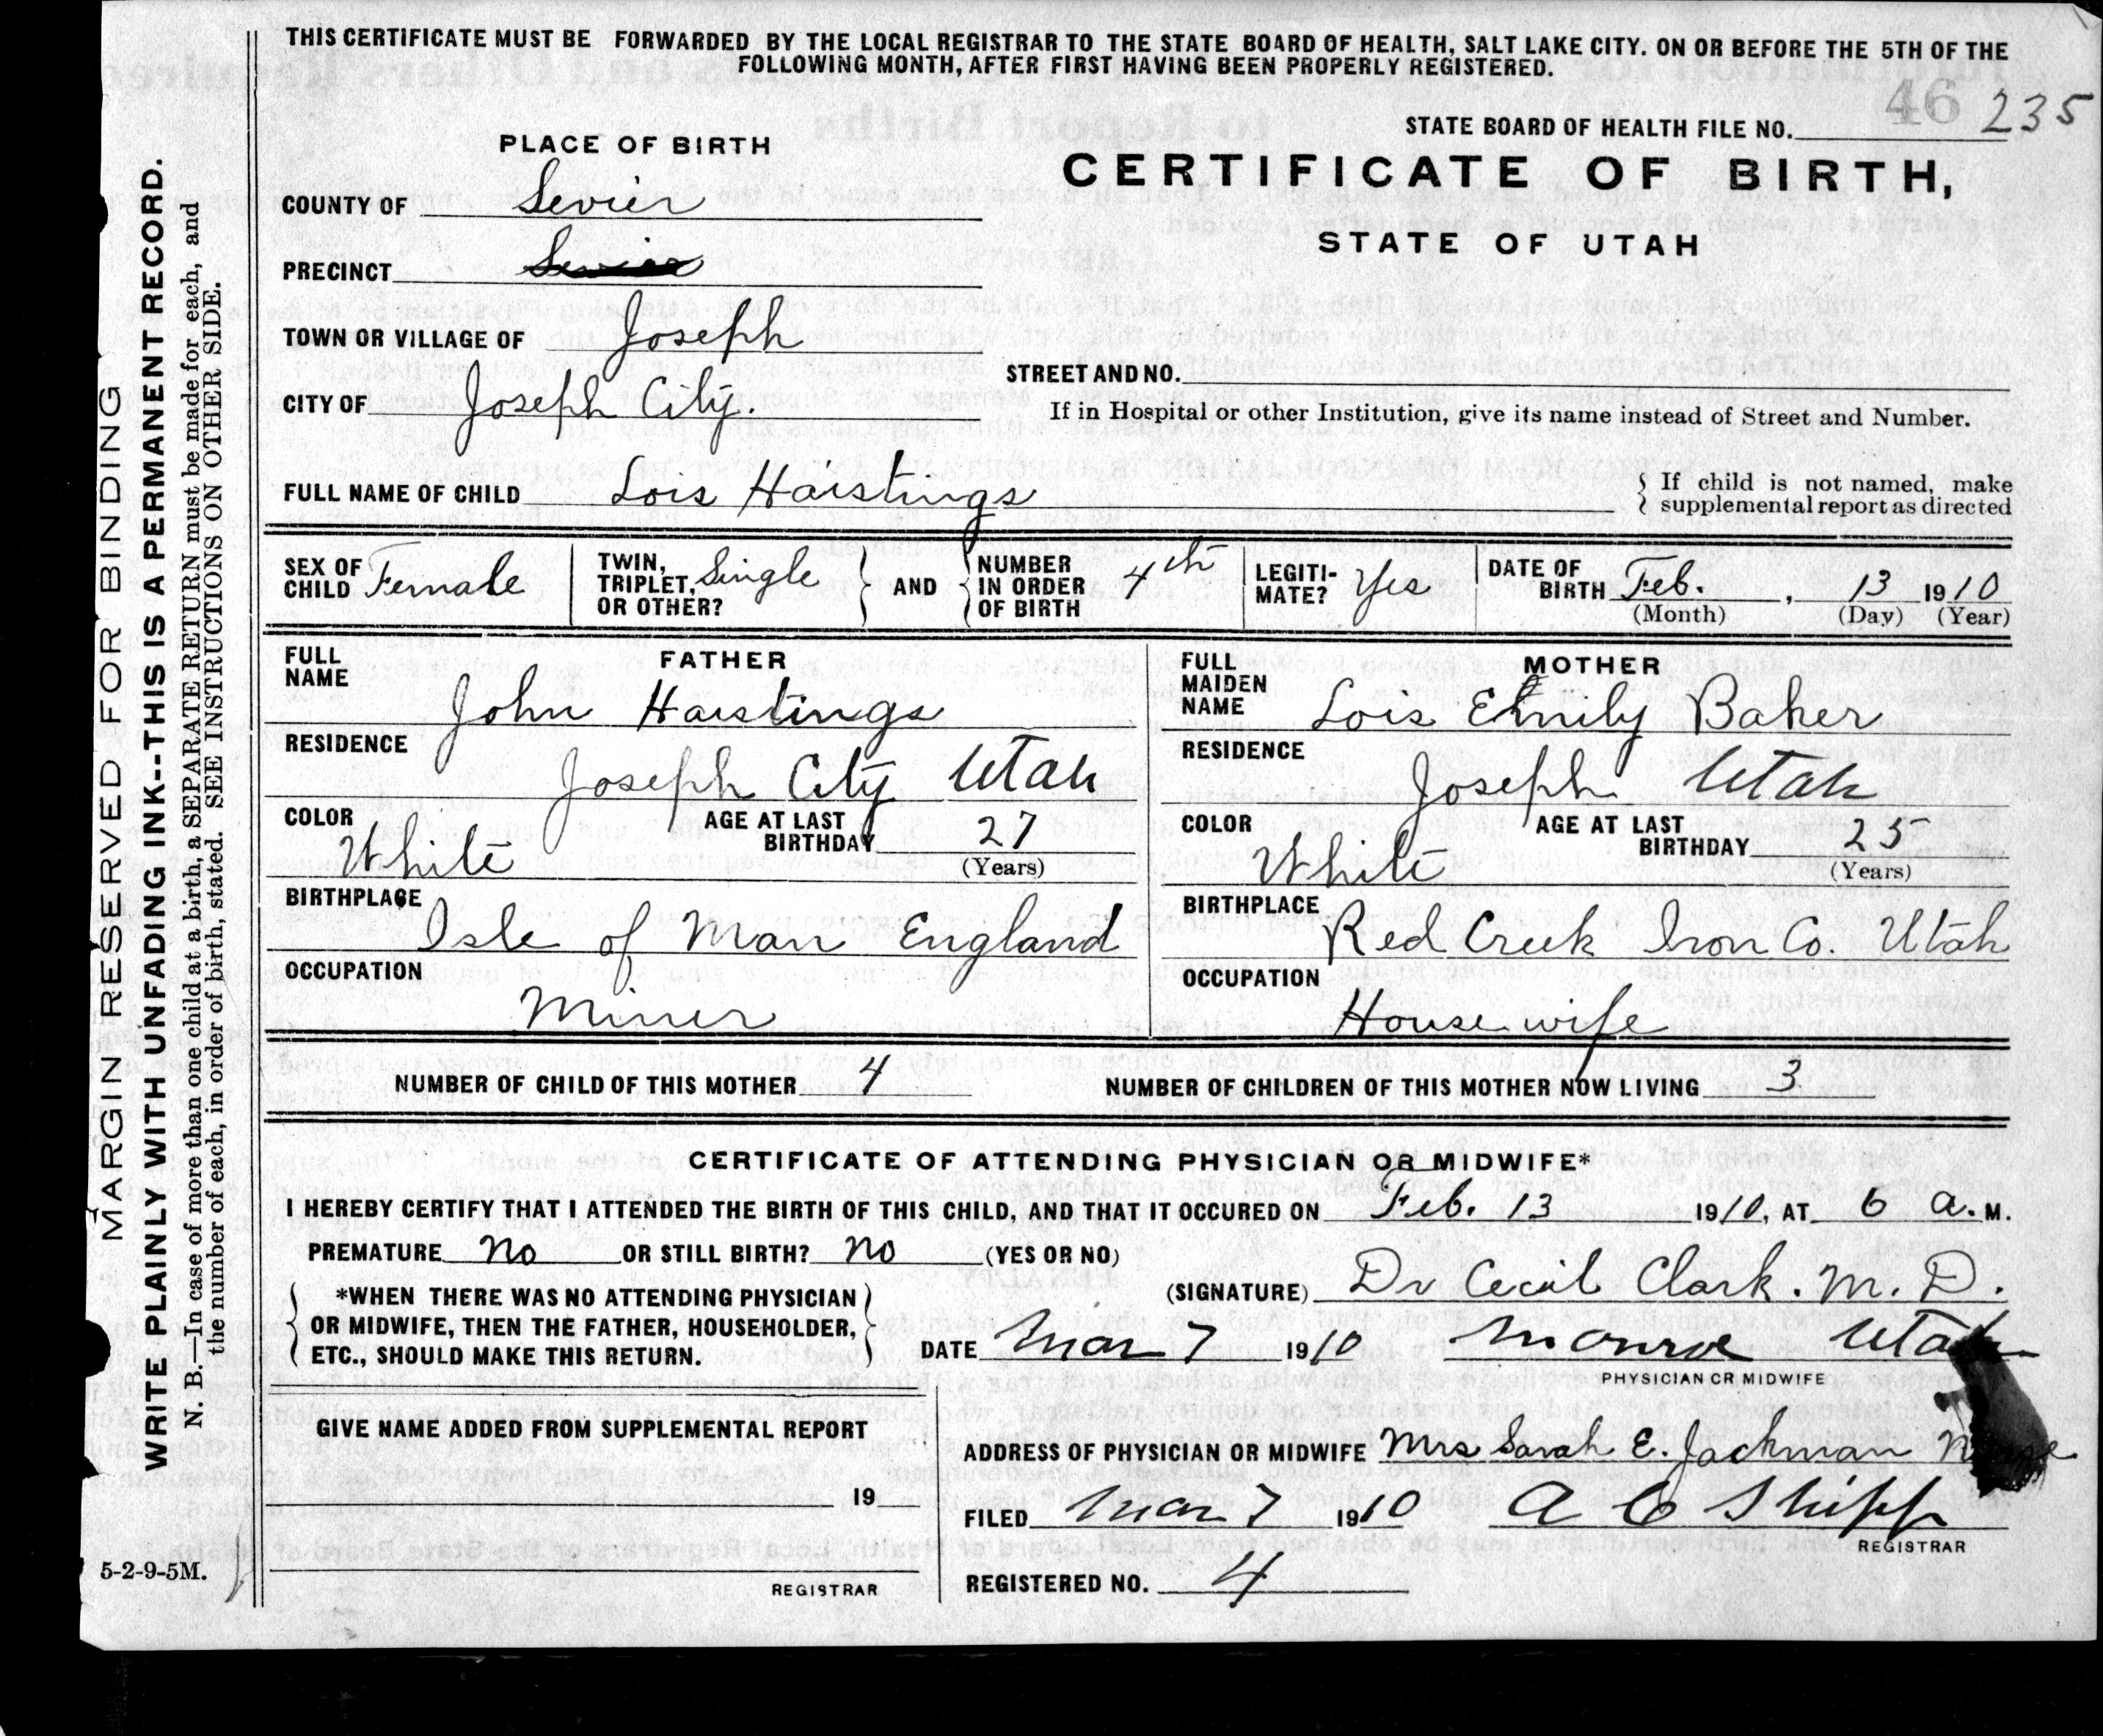 THIS CERTIFICATE MUST BE FORWARDED BY THE LOCAL REGISTRAR TO THE STATE BOARD OF HEALTH, SALT LAKE CITY. ON OR BEFORE THE 5TH OF THE
FOLLOWING MONTH, AFTER FIRST HAVING BEEN PROPERLY REGISTERED.
46 235
STATE BOARD OF HEALTH FILE NO.
PLACE OF BIRTH
CERTIFICATE OF BIRTH,
STATE OF UTAH
COUNTY OF Sevier
PRECINCT Sevier
TOWN OR VILLAGE OF Joseph
STREET AND NO.
CITY OF Joseph City.
If in Hospital or other Institution, give its name instead of Street and Number.
FULL NAME OF CHILD Lois Haistings
If child is not named, make
supplemental report as directed
SEX OF CHILD Female
TWIN, TRIPLET, OR OTHER? Single
AND
NUMBER IN ORDER OF BIRTH 4th
LEGITI-MATE? Yes
DATE OF BIRTH Feb. , 13 1910
(Month) (Day) (Year)
FATHER
FULL NAME John Haistings
RESIDENCE Joseph City Utah
COLOR White
AGE AT LAST BIRTHDAY 27
(Years)
BIRTHPLACE Isle of Man England
OCCUPATION Miner
MOTHER
FULL MAIDEN NAME Lois Emily Baker
RESIDENCE Joseph Utah
COLOR White
AGE AT LAST BIRTHDAY 25
(Years)
BIRTHPLACE Red Creek Iron Co. Utah
OCCUPATION House wife
NUMBER OF CHILD OF THIS MOTHER 4
NUMBER OF CHILDREN OF THIS MOTHER NOW LIVING 3
CERTIFICATE OF ATTENDING PHYSICIAN OR MIDWIFE*
I HEREBY CERTIFY THAT I ATTENDED THE BIRTH OF THIS CHILD, AND THAT IT OCCURED ON Feb. 13 1910, AT 6 a. M.
PREMATURE no OR STILL BIRTH? no (YES OR NO)
(SIGNATURE) Dr Cecil Clark. M. D.
*WHEN THERE WAS NO ATTENDING PHYSICIAN
OR MIDWIFE, THEN THE FATHER, HOUSEHOLDER,
ETC., SHOULD MAKE THIS RETURN.
DATE Mar 7 1910 Monroe Utah
PHYSICIAN OR MIDWIFE
GIVE NAME ADDED FROM SUPPLEMENTAL REPORT
19
REGISTRAR
ADDRESS OF PHYSICIAN OR MIDWIFE Mrs Sarah E. Jackman Nurse
FILED Mar 7 1910 A C Shipp
REGISTRAR
REGISTERED NO. 4
5-2-9-5M.
MARGIN RESERVED FOR BINDING
WRITE PLAINLY WITH UNFADING INK--THIS IS A PERMANENT RECORD.
N. B.—In case of more than one child at a birth, a SEPARATE RETURN must be made for each, and
the number of each, in order of birth, stated. SEE INSTRUCTIONS ON OTHER SIDE.